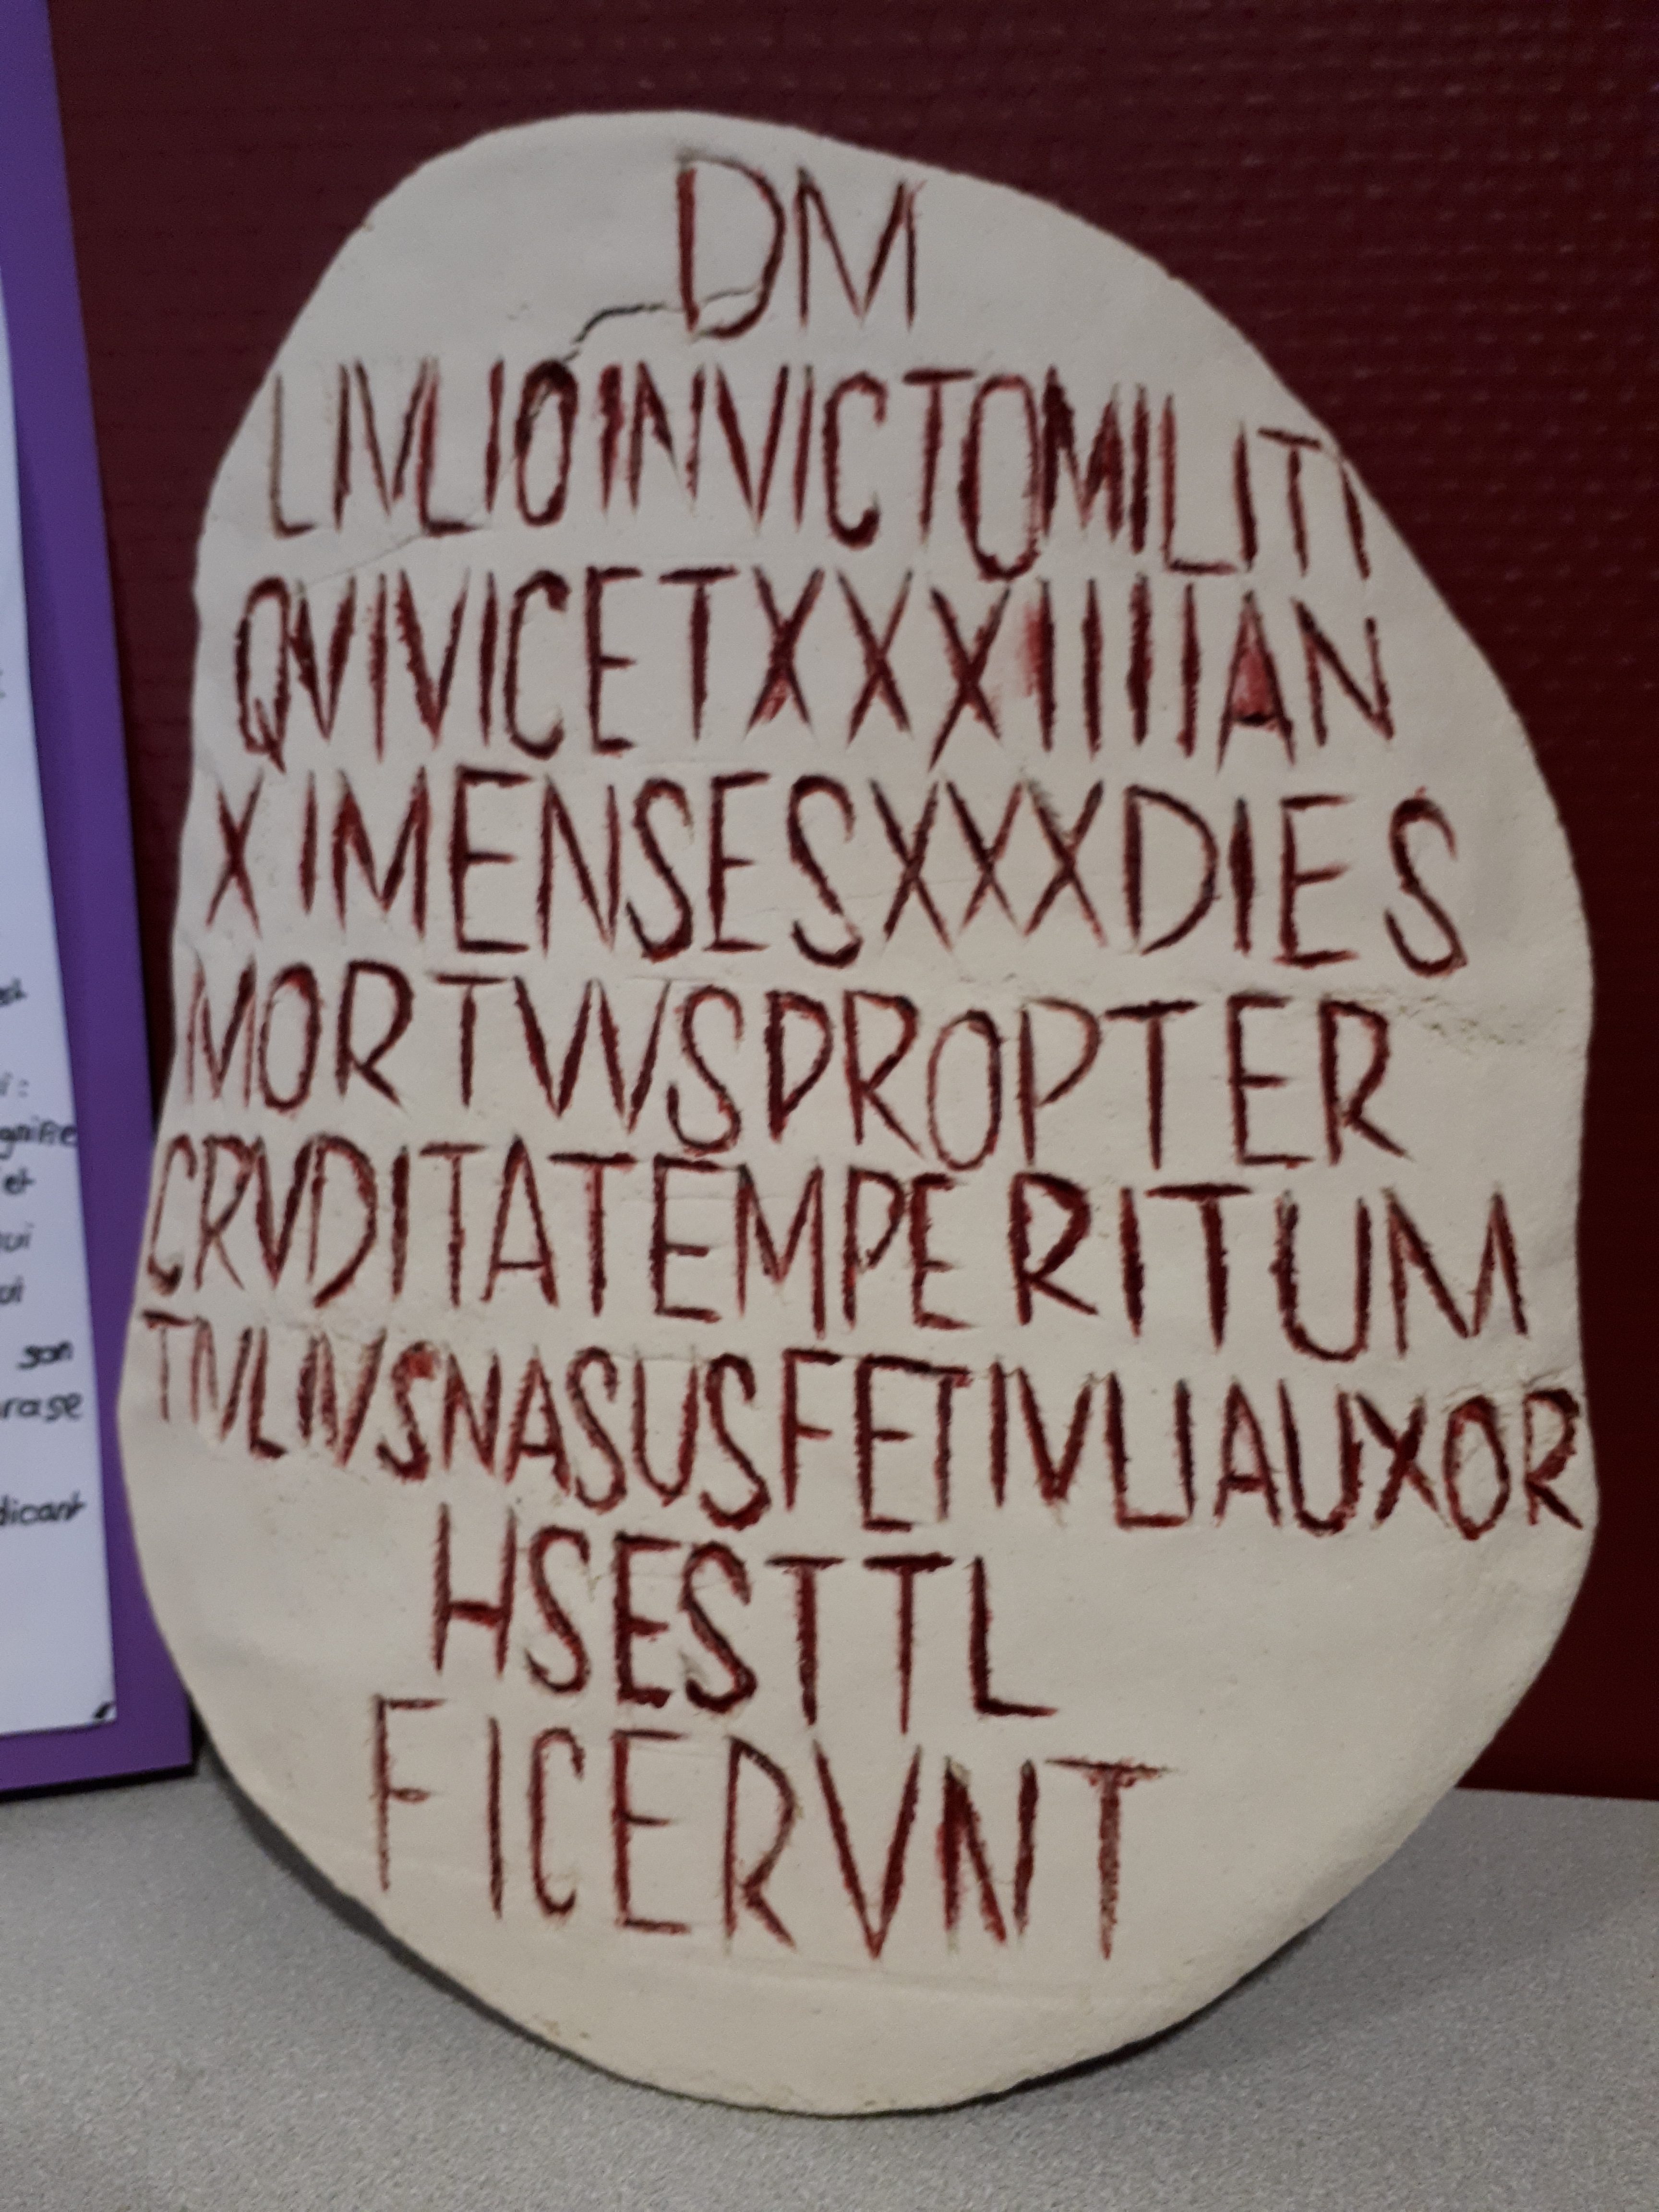 DM
LIVLIOINVICTOMILITI
QVIVICETXXXIIIIAN
XIMENSESXXXDIES
MORTVVSPROPTER
CRVDITATEMPERITUM
TIVLIVSNASUSFETIVLIAUXOR
HSESTTL
FICERVNT
gnifie
et
son
rase
dicant